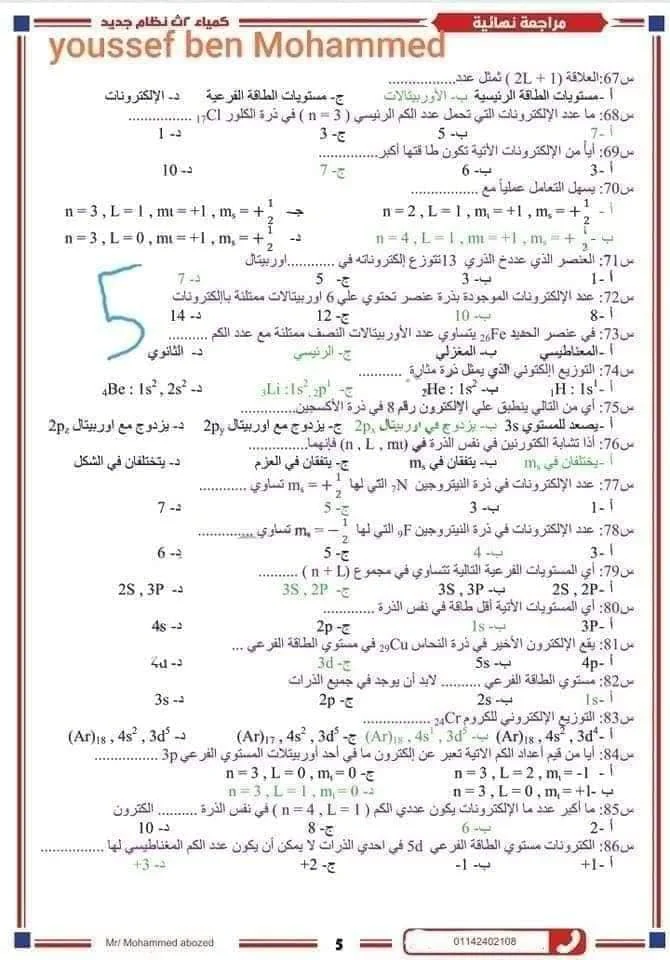 كمياء ٢ث نظام جديد
مراجعة نهائية
youssef ben Mohammed
س67:العلاقة (2L + 1 ) تمثل عدد.................
أ -مستويات الطاقة الرئيسية ب- الأوربيتالات ج- مستويات الطاقة الفرعية د- الإلكترونات
س68: ما عدد الإلكترونات التي تحمل عدد الكم الرئيسي ( n = 3 ) في ذرة الكلور ₁₇Cl ................
أ -7 ب- 5 ج- 3 د- 1
س69: أياً من الإلكترونات الأتية تكون طا قتها أكبر...............
أ -3 ب- 6 ج- 7 د- 10
س70: يسهل التعامل عملياً مع .................
أ - n = 2 , L = 1 , mₗ = +1 , mₛ = + 1/2 ج- n = 3 , L = 1 , mι = +1 , mₛ = + 1/2
ب - n = 4 , L = 1 , mι = +1 , mₛ = + 1/2 د- n = 3 , L = 0 , mι = +1 , mₛ = + 1/2
س71: العنصر الذي عددخ الذري 13تتوزع إلكتروناته في ............اوربيتال
أ -1 ب- 3 ج- 5 د- 7
5
س72: عدد الإلكترونات الموجودة بذرة عنصر تحتوي علي 6 اوربيتالات ممتلئة باإلكترونات
أ -8 ب- 10 ج- 12 د- 14
س73: في عنصر الحديد ₂₆Fe يتساوي عدد الأوربيتالات النصف ممتلئة مع عدد الكم ..........
أ -المغناطيسي ب- المغزلي ج- الرئيسي د- الثانوي
س74: التوزيع الإلكتوني الذي يمثل ذرة مثارة ...........
أ -₁H : 1s¹ ب- ₂He : 1s² ج- ₃Li :1s² ,₂p¹ د- ₄Be : 1s² , 2s²
س75: أي من التالي ينطبق علي الإلكترون رقم 8 في ذرة الأكسجين...............
أ -يصعد للمستوي 3s ب- يزدوج في اوربيتال 2pₓ ج- يزدوج مع اوربيتال 2pᵧ د- يزدوج مع اوربيتال 2p_z
س76: أذا تشابة الكتورنين في نفس الذرة في (n , L , mι ) فإنهما...............
أ -يختلفان في mₛ ب- يتفقان في mₛ ج- يتفقان في العزم د- يتختلفان في الشكل
س77: عدد الإلكترونات في ذرة النيتروجين ₇N التي لها mₛ = + 1/2 تساوي ............
أ -1 ب- 3 ج- 5 د- 7
س78: عدد الإلكترونات في ذرة النيتروجين ₉F التي لها mₛ = − 1/2 تساوي ...............
أ -3 ب- 4 ج- 5 د- 6
س79: أي المستويات الفرعية التالية تتساوي في مجموع (n + L ) ..........
أ -2S , 2P ب- 3S , 3P ج- 3S , 2P د- 2S , 3P
س80: أي المستويات الأتية أقل طاقة في نفس الذرة .............
أ -3P ب- 1s ج- 2p د- 4s
س81: يقع الإلكترون الأخير في ذرة النحاس ₂₉Cu في مستوي الطاقة الفرعي ...
أ -4p ب- 5s ج- 3d د- 4d
س82: مستوي الطاقة الفرعي .......... لابد أن يوجد في جميع الذرات
أ -1s ب- 2s ج- 2p د- 3s
س83: التوزيع الإلكتروني للكروم ₂₄Cr .................
أ -(Ar)₁₈ , 4s² , 3d⁴ ب- (Ar)₁₈ , 4s¹ , 3d⁵ ج- (Ar)₁₇ , 4s² , 3d⁵ د- (Ar)₁₈ , 4s² , 3d⁵
س84: أيا من قيم أعداد الكم الاتية تعبر عن إلكترون ما في أحد أوربيتلات المستوي الفرعي 3p ................
أ - n = 3 , L = 2 , mₗ = -1 ج- n = 3 , L = 0 , mₗ = 0
ب - n = 3 , L = 0 , mₗ = +1 د- n = 3 , L = 1 , mₗ = 0
س85: ما أكبر عدد ما الإلكترونات يكون عددي الكم ( n = 4 , L = 1 ) في نفس الذرة .......... الكترون
أ -2 ب- 6 ج- 8 د- 10
س86: الكترونات مستوي الطاقة الفرعي 5d في احدي الذرات لا يمكن أن يكون عدد الكم المغناطيسي لها ................
أ -1+ ب- 1- ج- 2+ د- 3+
Mr/ Mohammed abozed
5
01142402108